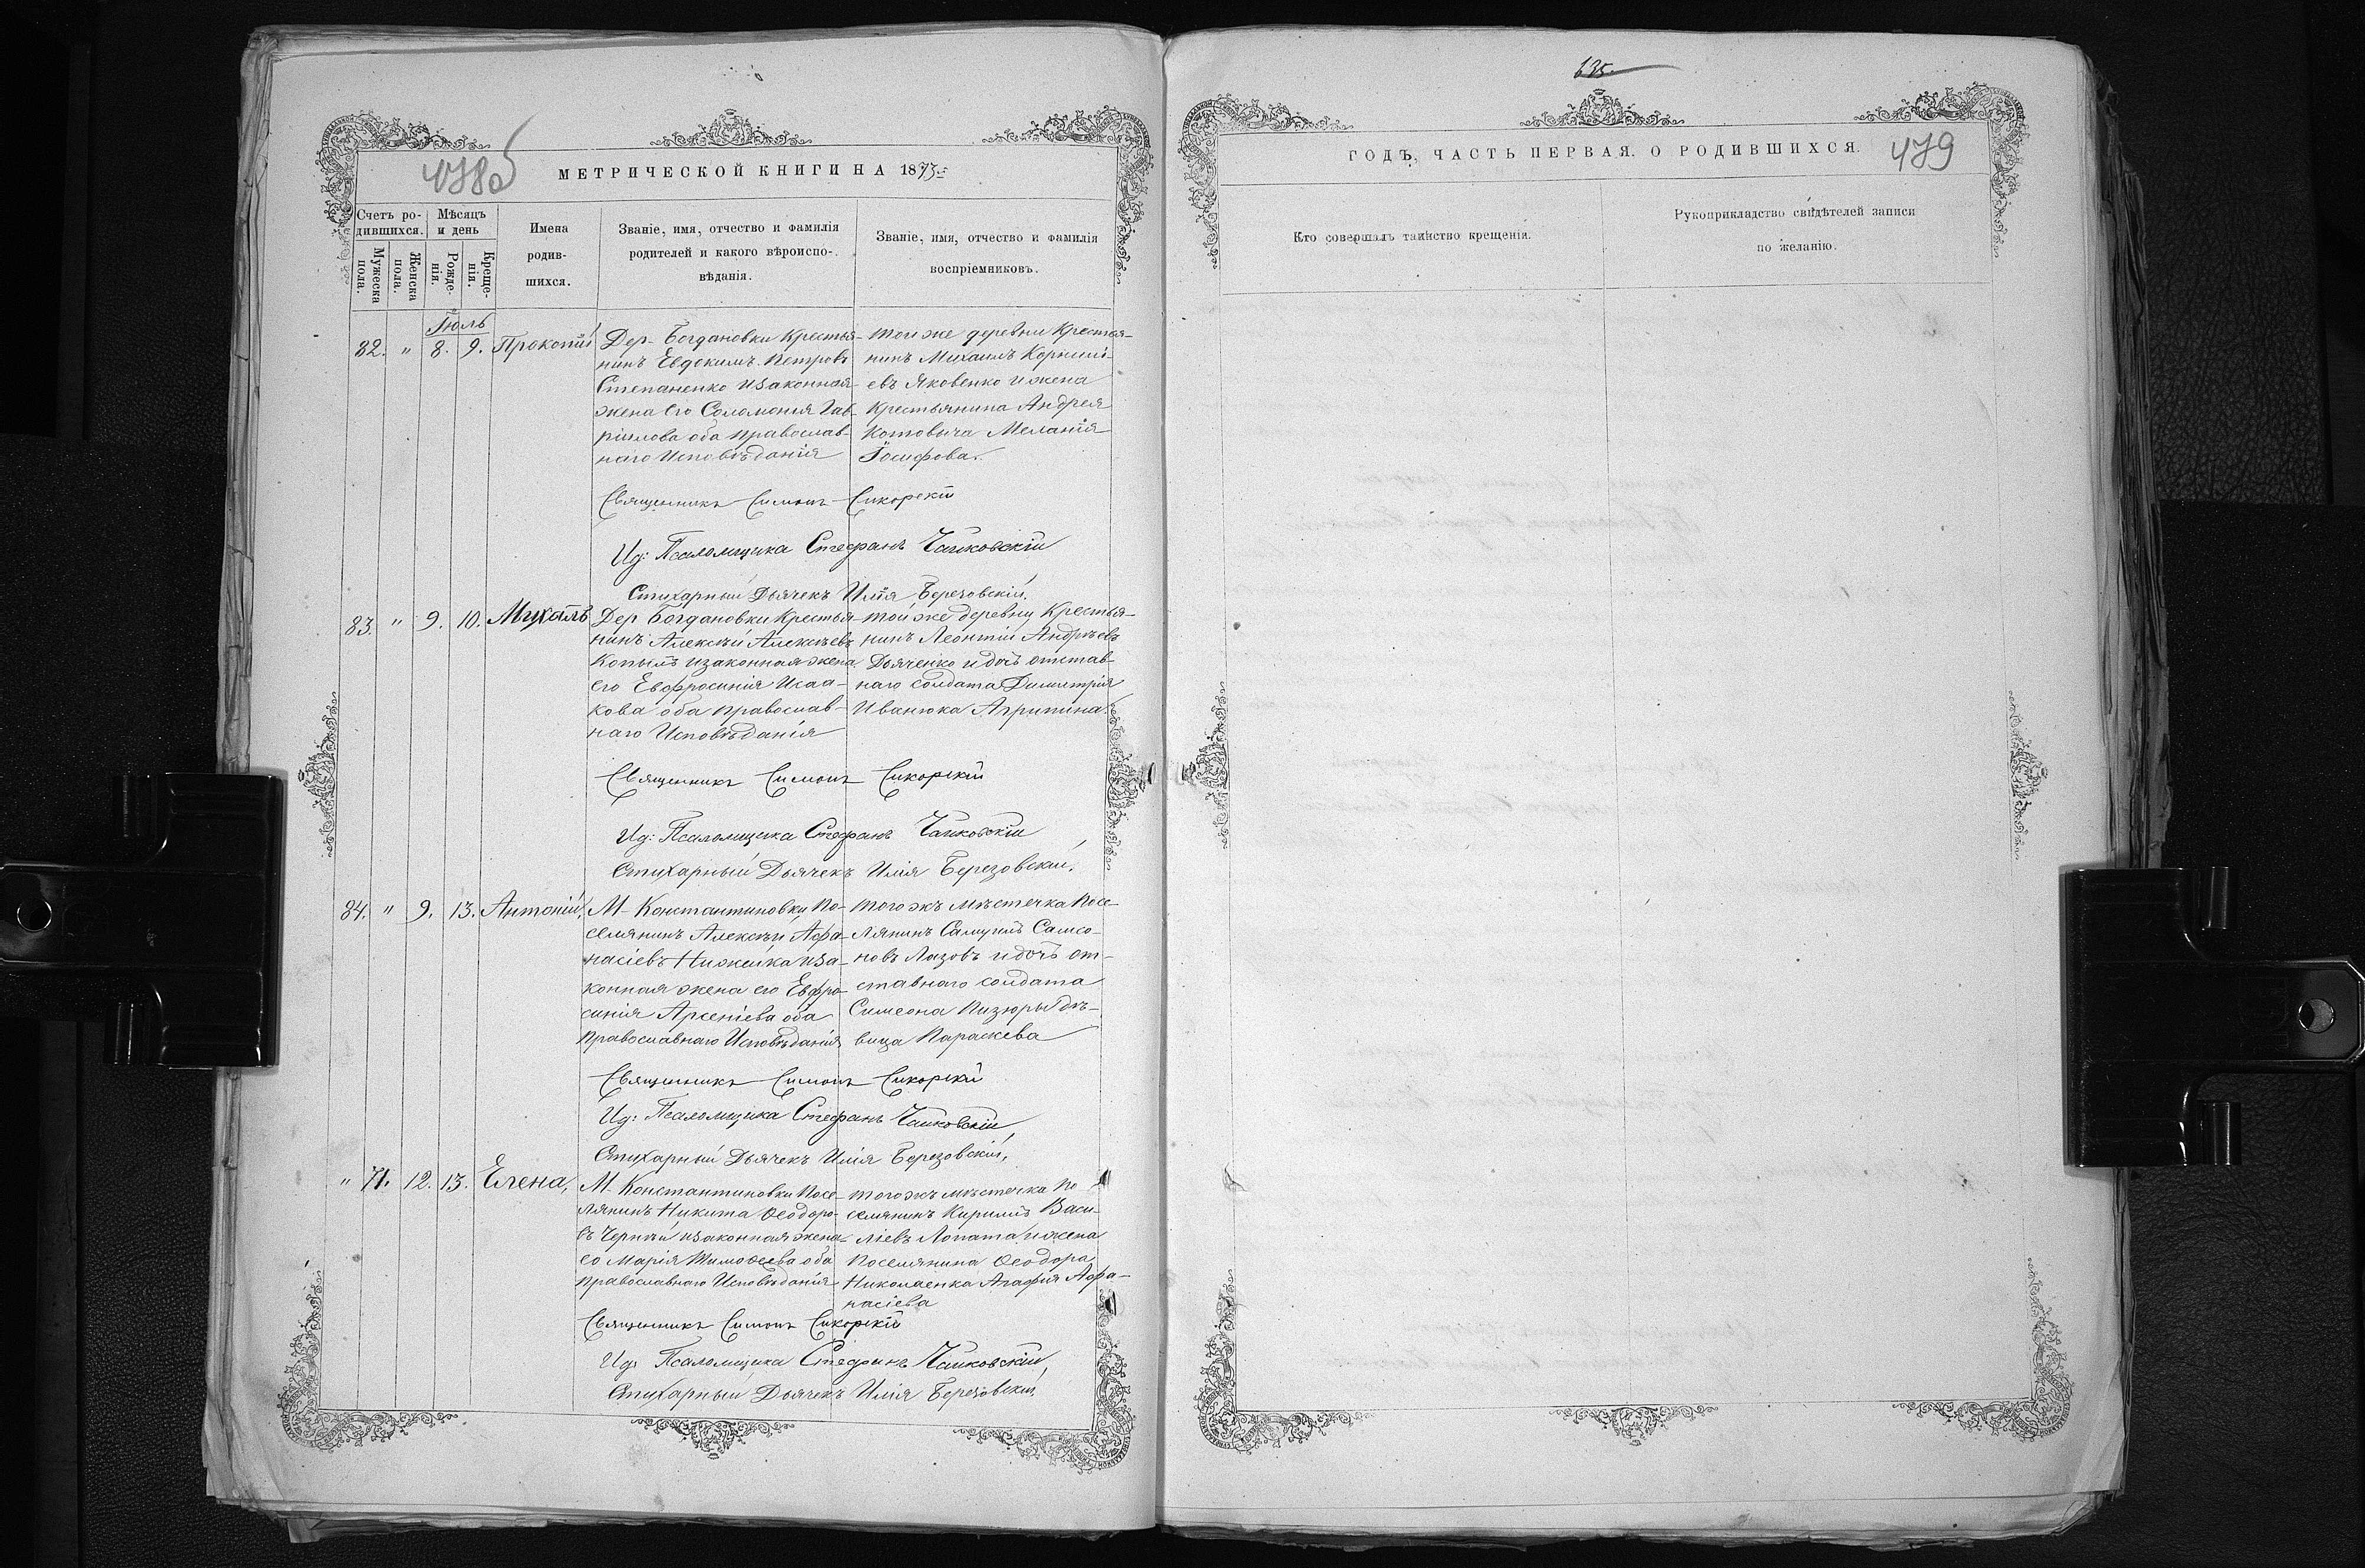 478об
МЕТРИЧЕСКОЙ КНИГИ НА 1873
Счетъ ро-
дившихся.
Мѣсяцъ
и день
Мужеска
пола.
Женска
пола.
Рожде-
нія.
Креще-
нія.
Имена
родив-
шихся.
Званіе, имя, отчество и фамилія
родителей и какого вѣроиспо-
вѣданія.
Званіе, имя, отчество и фамилія
воспріемниковъ.
Іюль
82. " 8. 9. Прокопій
Дер. Богдановки Крестья-
нинъ Евдокимъ Петровъ
Степаненко и законная
жена его Соломонія Гав-
ріилова оба православ-
наго Исповѣданія
той же деревни Крестья-
нинъ Михаилъ Корнилі-
евъ Яковенко и жена
Крестьянина Андрея
Котовича Меланія
Іосифова.
Священникъ Симонъ Сикорскій
Ид: Псаломщика Стефанъ Чайковскій
Стихарный Дьячекъ Илія Березовскій.
83. " 9. 10. Михаилъ
Дер Богдановки Крестья-
нинъ Алексѣй Алексѣевъ
Копылъ и законная жена
его Евфросинія Исаа-
кова оба православ-
наго Исповѣданія
той же деревни Крестья-
нинъ Леонтій Андрѣевъ
Дьяченко и дочь отстав-
наго солдата Димитрія
Иванюка Агрипина.
Священникъ Симонъ Сикорскій
Ид: Псаломщика Стефанъ Чайковскій
Стихарный Дьячекъ Илія Березовскій.
84. " 9. 13. Антоній,
М. Константиновки По-
селянинъ Алексѣй Афа-
насіевъ Нижейка и за-
конная жена его Евфро-
синія Арсеніева оба
православнаго Исповѣданія
того жъ мѣстечка Посе-
лянинъ Самуилъ Самсо-
новъ Лазовъ и дочь от-
ставнаго солдата
Симеона Пизюры дѣ-
вица Параскева
Священникъ Симонъ Сикорскій
Ид: Псаломщика Стефанъ Чайковскій
Стихарный Дьячекъ Илія Березовскій.
" 71. 12. 13. Елена,
М. Константиновки Посе-
лянинъ Никита Ѳеодоро-
въ Чернѣй и законная жена
его Марія Тимоѳеева оба
православнаго Исповѣданія
того жъ мѣстечка По
селянинъ Кириллъ Васи-
ліевъ Лопата и жена
поселянина Ѳеодора
Николаенка Агафія Афа-
насіева
Священникъ Симонъ Сикорскій
Ид: Псаломщика Стефанъ Чайковскій
Стихарный Дьячекъ Илія Березовскій
635
479
ГОДЪ, ЧАСТЬ ПЕРВАЯ. О РОДИВШИХСЯ.
Кто совершалъ таинство крещенія.
Рукоприкладство свидѣтелей записи
по желанію.